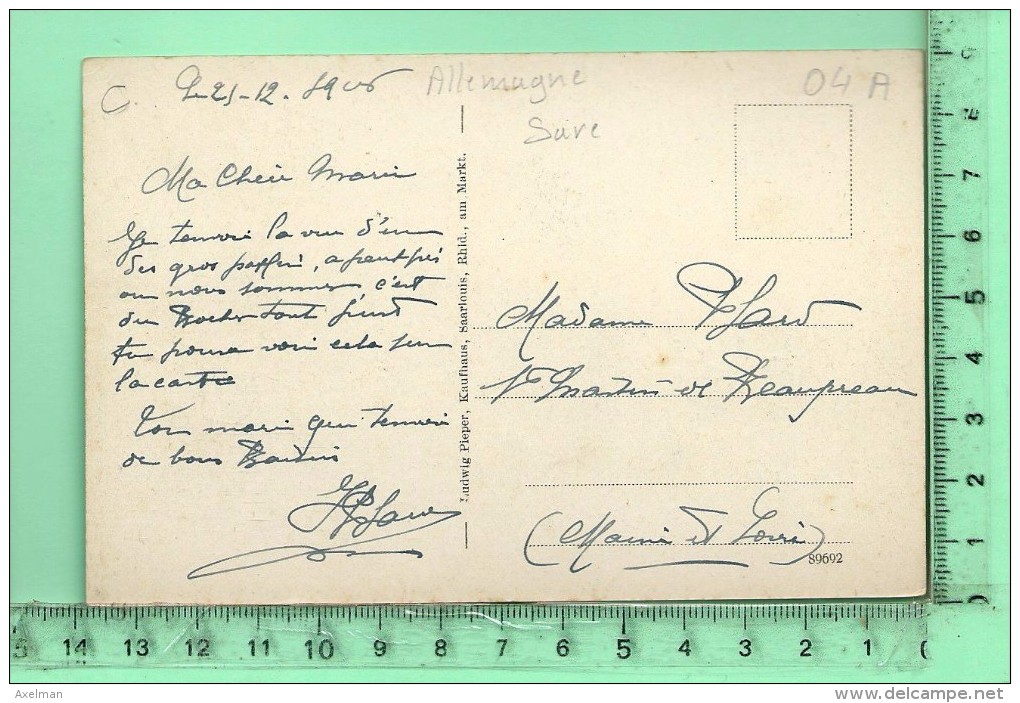 C.
Le 21-12-19
Allemagne
Sarre
04 A
Ma Chère Marie
Je tenvoie la vue d'un
des gros , a peut près
ou nous sommes c'est
du tout
tu poura voir cela sur
la carte
Ton mari qui tenvoie
de bons Baisers
Ludwig Pieper, Kaufhaus, Saarlouis, Rhld., am Markt.
Madame
St Martin de Beaupreau
(Maine et Loire)
89692
15 14 13 12 11 10 9 8 7 6 5 4 3 2 1 0
9 8 7 6 5 4 3 2 1 0
Axelman
http://www.delcampe.net